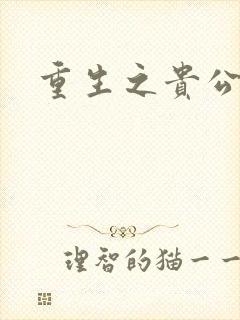 重生之貴公
理智的猫一一